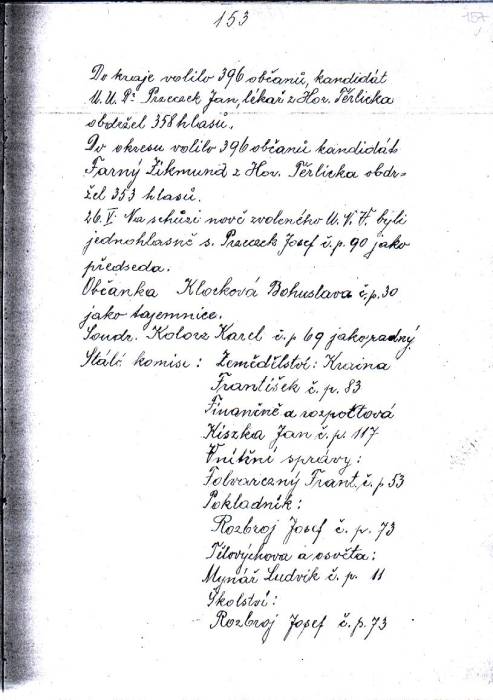 153
157
Do kraje volilo 396 občanů, kandidát
U.U. Dr Przeczek Jan, lékař z Hor. Těrlicka
obdržel 358 hlasů.
Do okresu volilo 396 občanů kandidát
Farný Zikmund z Hor. Těrlicka obdr-
žel 353 hlasů.
26.V. Na schůzi nově zvoleného M.N.V. byli
jednohlasně s. Przeczek Josef č.p. 90 jako
předseda.
Občanka Klocková Bohuslava č.p. 30
jako tajemnice.
Soudr. Kolorz Karel č.p 69 jako radný
Stálé komise: Zemědělství: Kraina
František č.p. 83
Finančně a rozpočtová
Kiszka Jan č.p. 117
Vnitřní správy:
Folvarczný Frant. č.p 53
Pokladník:
Rozbroj Josef č.p. 73
Tělovýchova a osvěta:
Mynář Ludvík č.p. 11
Školství:
Rozbroj Josef č.p. 73